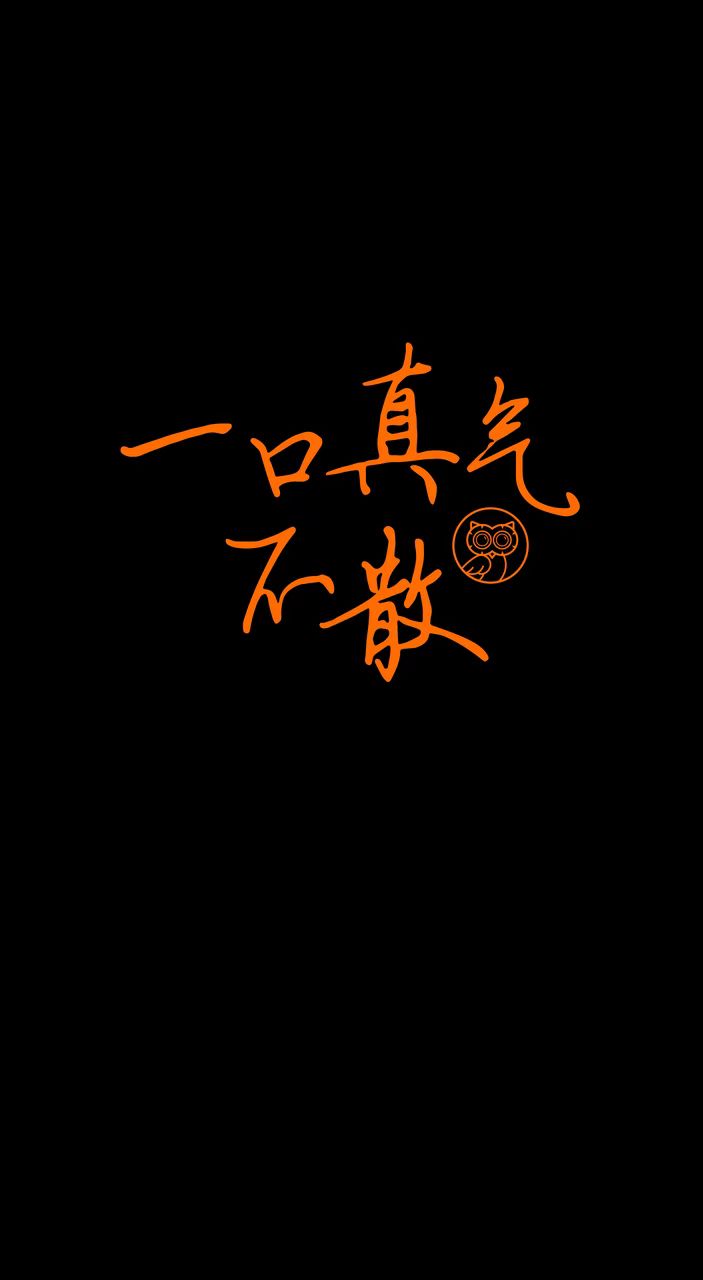 一口真气
不散